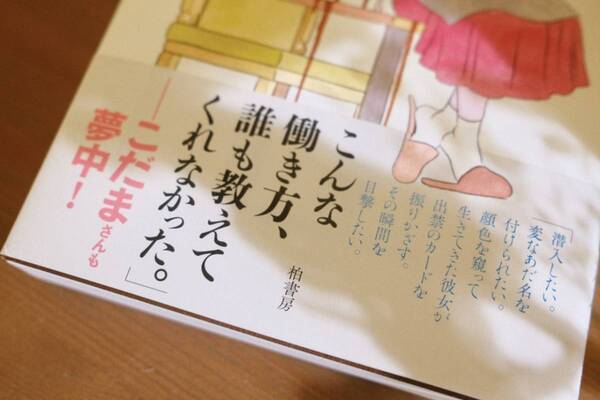 「潜入したい。
変なあだ名を
付けられたい。
顔色を窺って
生きてきた彼女が
出禁のカードを
振りかざす。
その瞬間を
目撃したい。
こんな
働き方、
誰も教えて
くれなかった。」
──こだまさんも
夢中!
柏書房